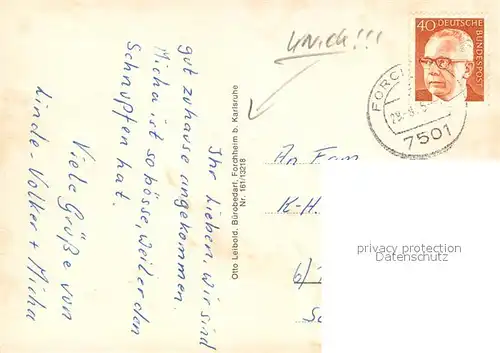 Ihr Lieben, wir sind
gut zuhause angekommen.
Micha ist so bösse, weil er den
Schnupfen hat.
Viele Grüße von
Linde-Volker + Micha
Otto Leibold, Bürobedarf, Forchheim b. Karlsruhe
Nr. 161/13218
!!!
40 DEUTSCHE
BUNDESPOST
FORC
7501
An Fam
K-H.
privacy protection
Datenschutz